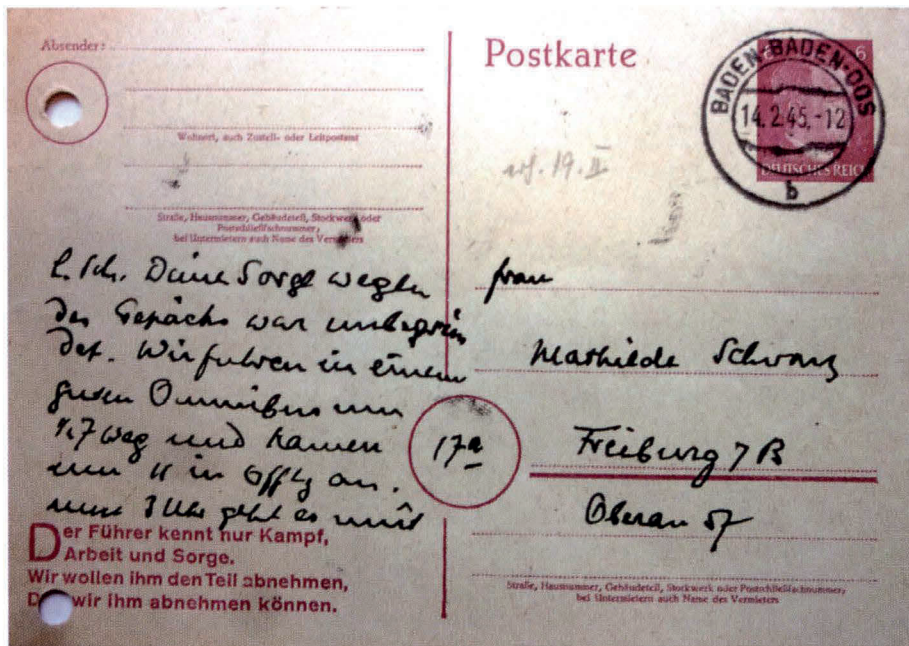 Absender:
Wohnort, auch Zustell- oder Leitpostamt
Straße, Hausnummer, Gebäudeteil, Stockwerk oder
Postschließfachnummer;
bei Untermietern auch Name des Vermieters
L. Sch. Deine Sorge wegen
des Gepäcks war unbegrün
det. Wir fuhren in einem
guten Omnibus um
½7 weg und kamen
um 11 in Offbg an.
um 3 Uhr geht es mit
Der Führer kennt nur Kampf,
Arbeit und Sorge.
Wir wollen ihm den Teil abnehmen,
D wir ihm abnehmen können.
Postkarte
6
DEUTSCHES REICH
BADEN-BADEN-OOS
14.2.45.-12
b
19. II
Frau
Mathilde Schwarz
17a
Freiburg 7 B
Oberau 57
Straße, Hausnummer, Gebäudeteil, Stockwerk oder Postschließfachnummer;
bei Untermietern auch Name des Vermieters